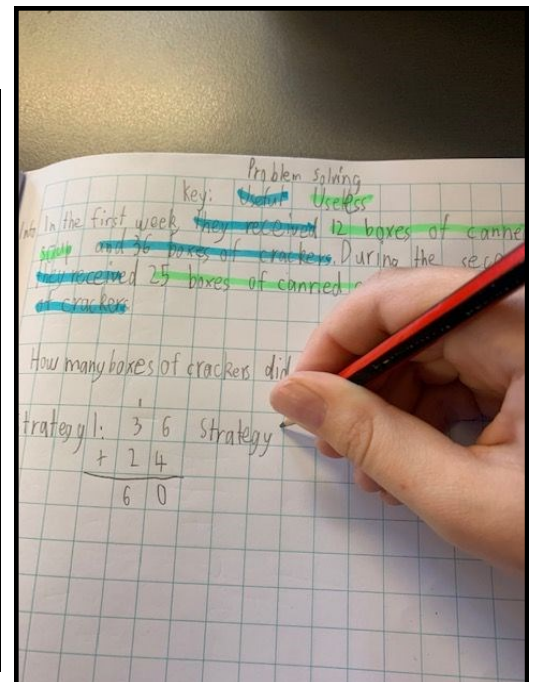 Problem solving
Key: Useful Useless
In the first week, they received 12 boxes of canne
and 36 boxes of crackers. During the seco
they received 25 boxes of canned
of crackers
How many boxes of crackers did
trategy 1: 3 6 Strategy
1
+ 2 4
6 0